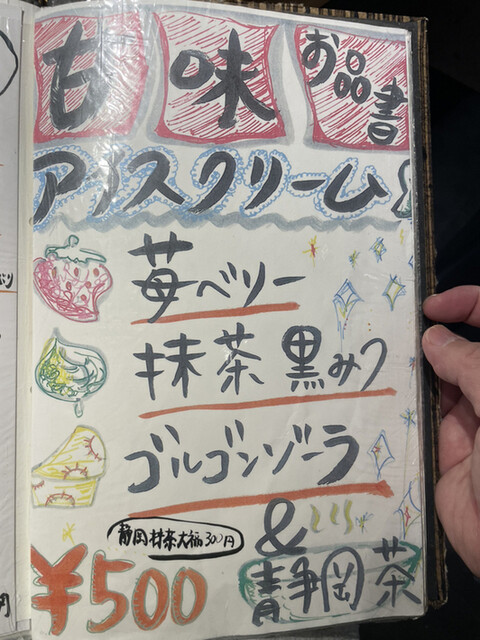 甘味 お品書
アイスクリーム
苺ベリー
抹茶黒みつ
ゴルゴンゾーラ
静岡抹茶大福300円
&
¥500 静岡茶